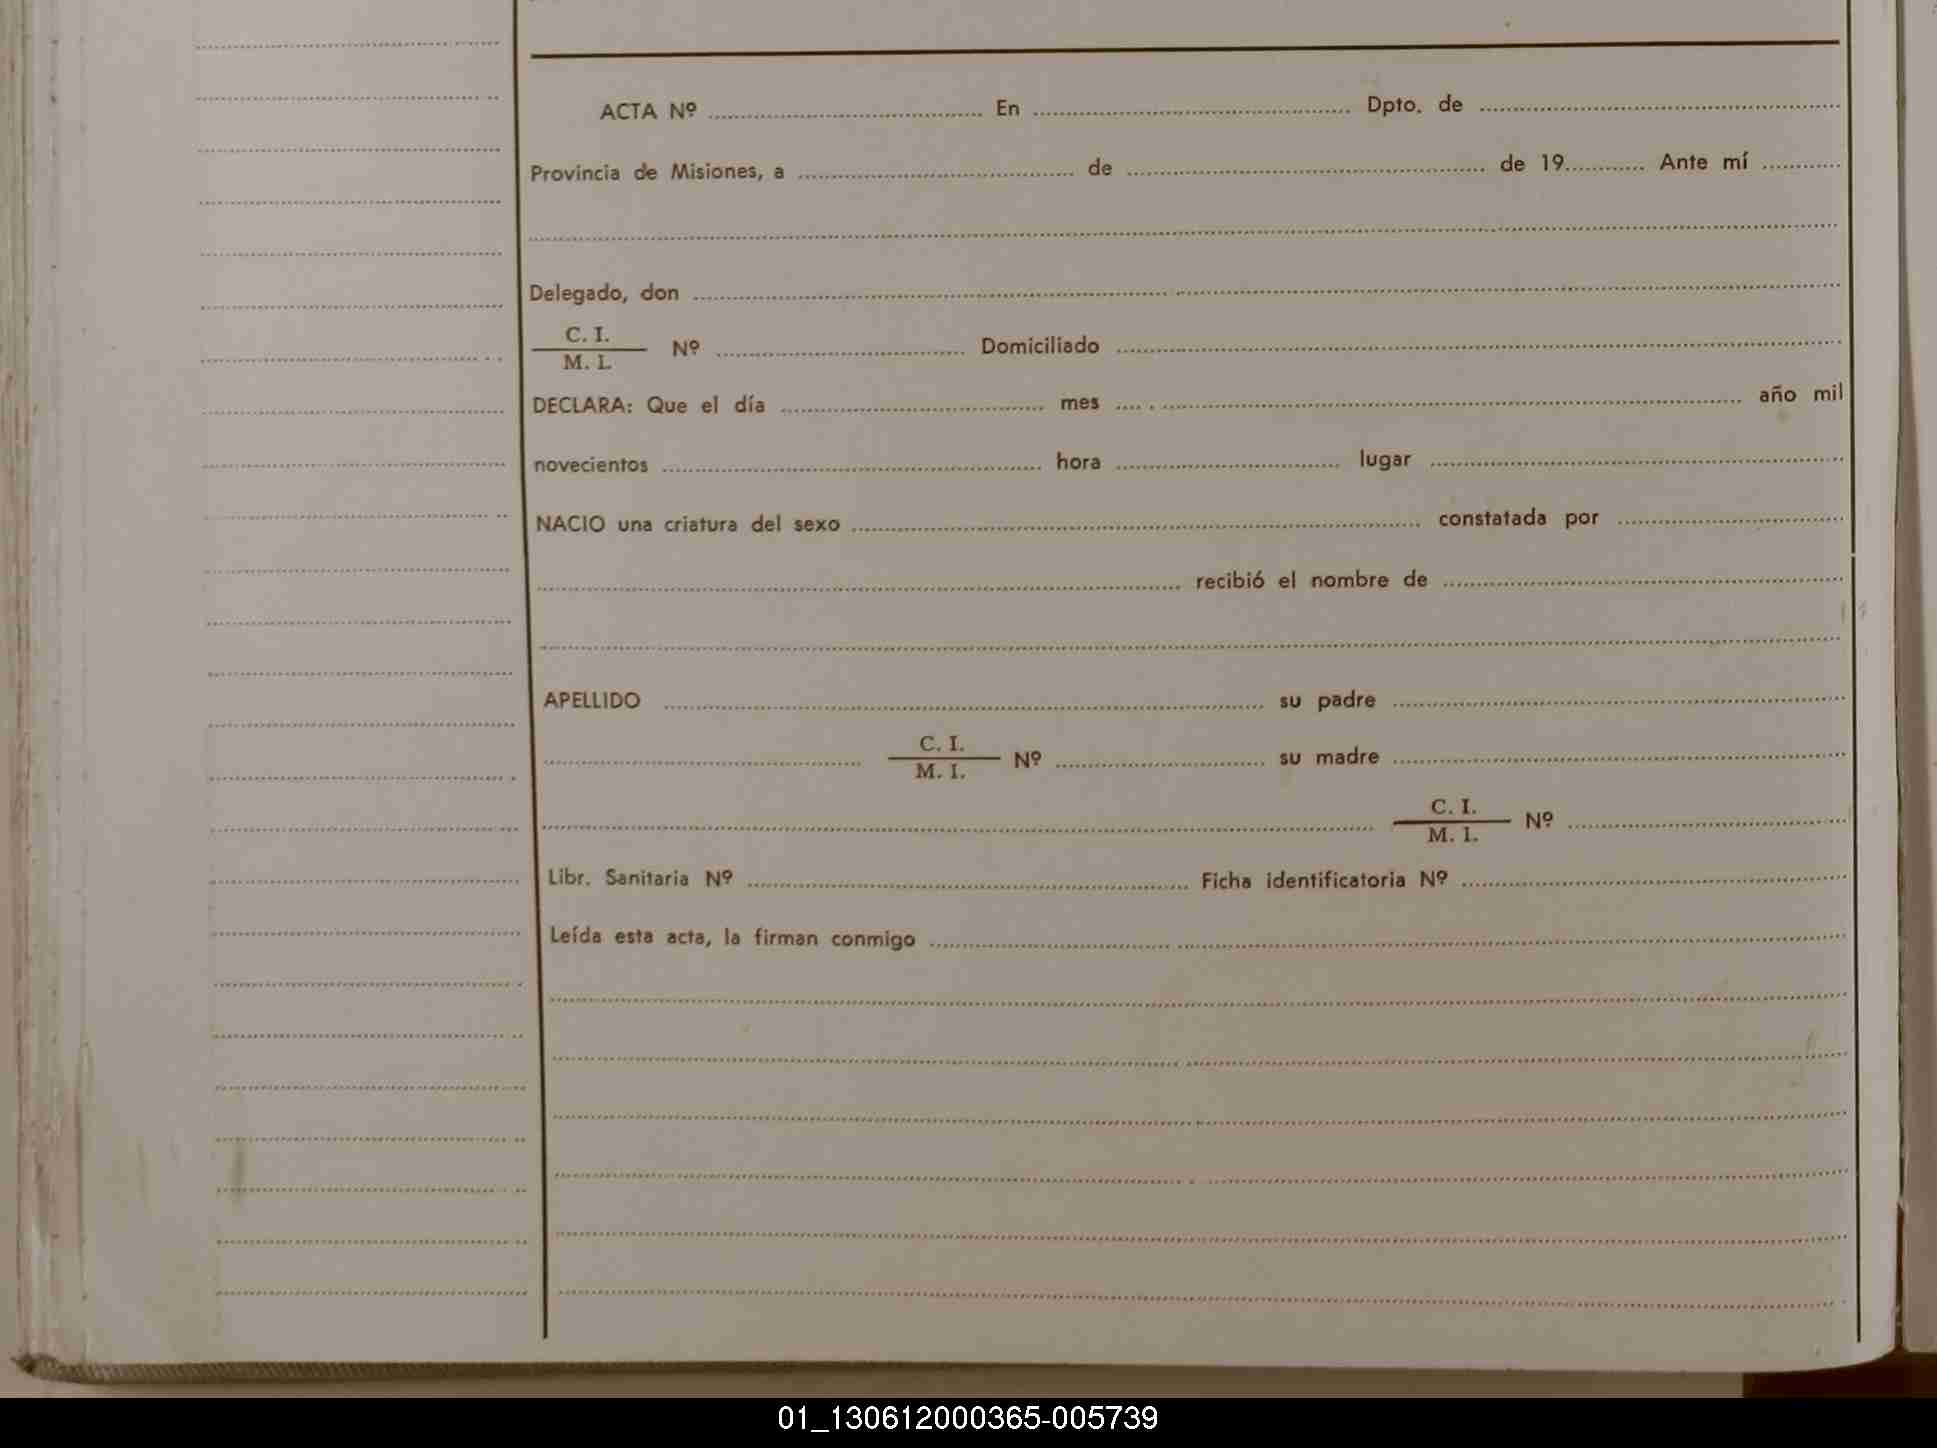 ACTA Nº ........ En ........ Dpto. de ........
Provincia de Misiones, a ........ de ........ de 19........ Ante mí ........
Delegado, don ........
C. I.
M. I. Nº ........ Domiciliado ........
DECLARA: Que el día ........ mes ........ año mil
novecientos ........ hora ........ lugar ........
NACIO una criatura del sexo ........ constatada por ........
........ recibió el nombre de ........
APELLIDO ........ su padre ........
........ C. I.
M. I. Nº ........ su madre ........
........ C. I.
M. I. Nº ........
Libr. Sanitaria Nº ........ Ficha identificatoria Nº ........
Leída esta acta, la firman conmigo ........
01_130612000365-005739